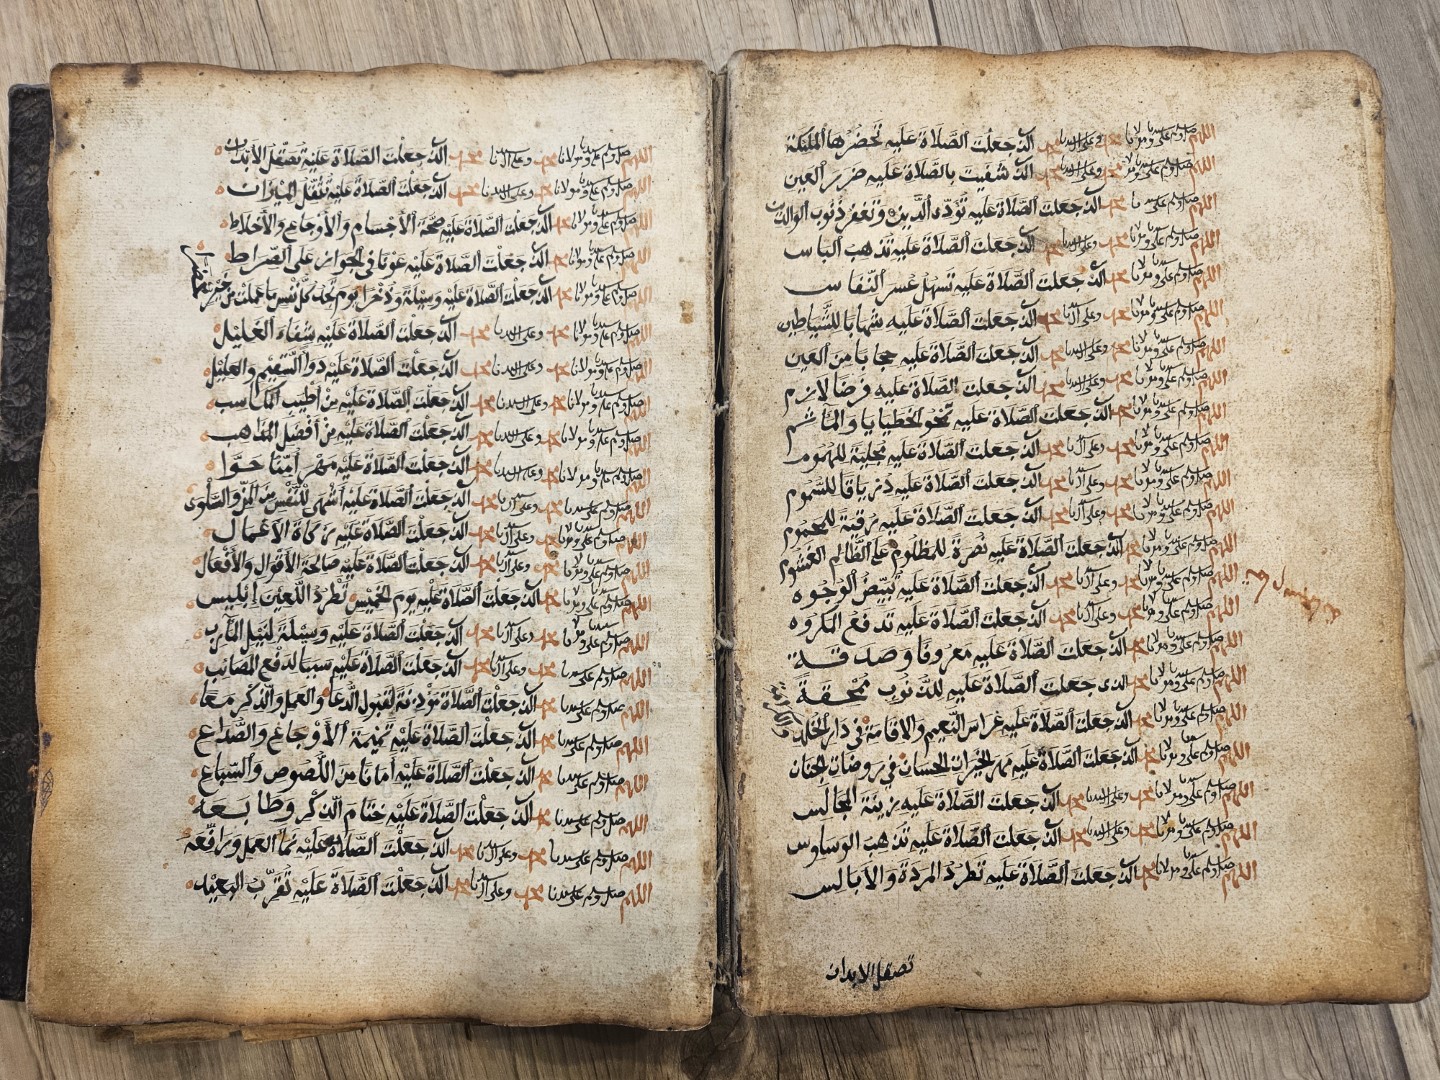 اللهم صل وسلم على سيدنا ومولانا محمد وعلى آل سيدنا محمد الذي جعلت الصلاة عليه تحضرها الملئكة
اللهم صل وسلم على سيدنا ومولانا محمد وعلى آل سيدنا محمد الذي شفيت بالصلاة عليه ضرير العين
اللهم صل وسلم على سيدنا محمد الذي جعلت الصلاة عليه تؤدى الدين وتغفر ذنوب الوالدين
اللهم صل وسلم على سيدنا ومولانا محمد وعلى آل سيدنا محمد الذي جعلت الصلاة عليه تذهب الباس
اللهم صل وسلم على سيدنا ومولانا محمد الذي جعلت الصلاة عليه تسهل عسر النفاس
اللهم صل وسلم على سيدنا ومولانا محمد وعلى آل سيدنا محمد الذي جعلت الصلاة عليه شهابا للشياطين
اللهم صل وسلم على سيدنا ومولانا محمد وعلى آل سيدنا محمد الذي جعلت الصلاة عليه حجابا من العين
اللهم صل وسلم على سيدنا ومولانا محمد وعلى آل سيدنا محمد الذي جعلت الصلاة عليه فرضا لازم
اللهم صل وسلم على سيدنا ومولانا محمد الذي جعلت الصلاة عليه تمحو الخطيايا والمأثم
اللهم صل وسلم على سيدنا ومولانا محمد وعلى آل سيدنا محمد الذي جعلت الصلاة عليه مجلية للهموم
اللهم صل وسلم على سيدنا ومولانا محمد وعلى آل سيدنا محمد الذي جعلت الصلاة عليه درياقا للسموم
اللهم صل وسلم على سيدنا ومولانا محمد وعلى آل سيدنا محمد الذي جعلت الصلاة عليه رقية للمحموم
اللهم صل وسلم على سيدنا ومولانا محمد الذي جعلت الصلاة عليه نصرة للمظلوم على الظالم الغشوم
اللهم صل وسلم على سيدنا ومولانا محمد وعلى آل سيدنا محمد الذي جعلت الصلاة عليه تبيض الوجوه
اللهم صل وسلم على سيدنا ومولانا محمد وعلى آل سيدنا محمد الذي جعلت الصلاة عليه تدفع المكروه
اللهم صل وسلم على سيدنا ومولانا محمد الذي جعلت الصلاة عليه معروفا وصدقة
اللهم صل وسلم على سيدنا ومولانا محمد الذي جعلت الصلاة عليه للذنوب ممحقة
اللهم صل وسلم على سيدنا ومولانا محمد الذي جعلت الصلاة عليه غراس النعيم والاقامة في دار الخلد
اللهم صل وسلم على سيدنا ومولانا محمد الذي جعلت الصلاة عليه مهر الخيرات الحسان في روضات الجنان
اللهم صل وسلم على سيدنا ومولانا محمد وعلى آل سيدنا محمد الذي جعلت الصلاة عليه زينة المجالس
اللهم صل وسلم على سيدنا ومولانا محمد وعلى آل سيدنا محمد الذي جعلت الصلاة عليه تذهب الوساوس
اللهم صل وسلم على سيدنا ومولانا محمد الذي جعلت الصلاة عليه تطرد المردة والابالس
تصقل الابدان
اللهم صل وسلم على سيدنا ومولانا محمد وعلى آل سيدنا محمد الذي جعلت الصلاة عليه تصقل الابدان
اللهم صل وسلم على سيدنا ومولانا محمد وعلى آل سيدنا محمد الذي جعلت الصلاة عليه تثقل الميزان
اللهم صل وسلم على سيدنا ومولانا محمد الذي جعلت الصلاة عليه صحة الأجسام والأوجاع والأخلاط
اللهم صل وسلم على سيدنا ومولانا محمد الذي جعلت الصلاة عليه عونا في الجواز على الصراط
اللهم صل وسلم على سيدنا ومولانا محمد الذي جعلت الصلاة عليه وسيلة وذخرا يوم تجد كل نفس ما عملت من خير محضرا
اللهم صل وسلم على سيدنا ومولانا محمد وعلى آل سيدنا محمد الذي جعلت الصلاة عليه شفاء الغليل
اللهم صل وسلم على سيدنا ومولانا محمد وعلى آل سيدنا محمد الذي جعلت الصلاة عليه دوا السقيم والعليل
اللهم صل وسلم على سيدنا ومولانا محمد وعلى آل سيدنا محمد الذي جعلت الصلاة عليه من أطيب المكاسب
اللهم صل وسلم على سيدنا ومولانا محمد وعلى آل سيدنا محمد الذي جعلت الصلاة عليه من أفضل المذاهب
اللهم صل وسلم على سيدنا ومولانا محمد وعلى آل سيدنا محمد الذي جعلت الصلاة عليه مهر أمنا حوا
اللهم صل وسلم على سيدنا محمد وعلى آل سيدنا محمد الذي جعلت الصلاة عليه أشهى للنفس من المن والسلوى
اللهم صل وسلم على سيدنا ومولانا محمد وعلى آل سيدنا محمد الذي جعلت الصلاة عليه زكاة الأعمال
اللهم صل وسلم على سيدنا ومولانا محمد وعلى آل سيدنا محمد الذي جعلت الصلاة عليه صالحة الأقوال والأفعال
اللهم صل وسلم على سيدنا ومولانا محمد الذي جعلت الصلاة عليه يوم الخميس تطرد اللعين إبليس
اللهم صل وسلم على سيدنا ومولانا محمد وعلى آل سيدنا محمد الذي جعلت الصلاة عليه وسيلة لنيل المأرب
اللهم صل وسلم على سيدنا محمد وعلى آل سيدنا محمد الذي جعلت الصلاة عليه سببا لدفع المصائب
اللهم صل وسلم على سيدنا محمد الذي جعلت الصلاة مؤذنة لقبول الدعا والعمل والذكر معا
اللهم صل وسلم على سيدنا محمد الذي جعلت الصلاة عليه تميمة الأوجاع والصداع
اللهم صل وسلم على سيدنا محمد الذي جعلت الصلاة عليه أمانا من اللصوص والسباع
اللهم صل وسلم على سيدنا محمد الذي جعلت الصلاة عليه ختام الذكر وطابعه
اللهم صل وسلم على سيدنا محمد وعلى آل سيدنا محمد الذي جعلت الصلاة عليه نما العمل ورافعه
اللهم صل وسلم على سيدنا محمد وعلى آل سيدنا محمد الذي جعلت الصلاة عليه تقرب البعيد